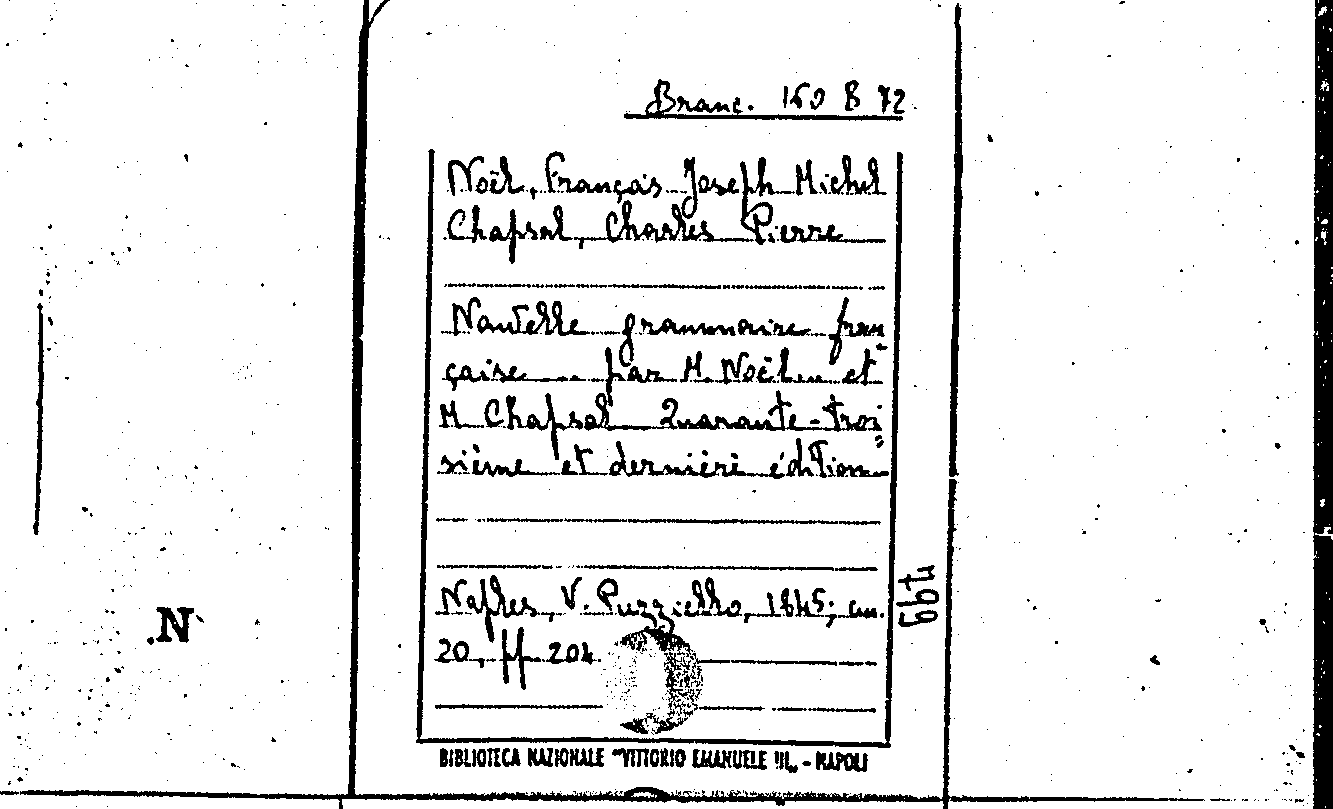 Branc. 160 B 72
Noël, François Joseph Michel
Chapsal, Charles Pierre
Nouvelle grammaire fran
çaise ... par M. Noël... et
M. Chapsal. Quarante-troi
sième et dernière édition
Naples, V. Puzziello, 1845; cm.
20, pp. 204
BIBLIOTECA NAZIONALE "VITTORIO EMANUELE III„ - NAPOLI
N.